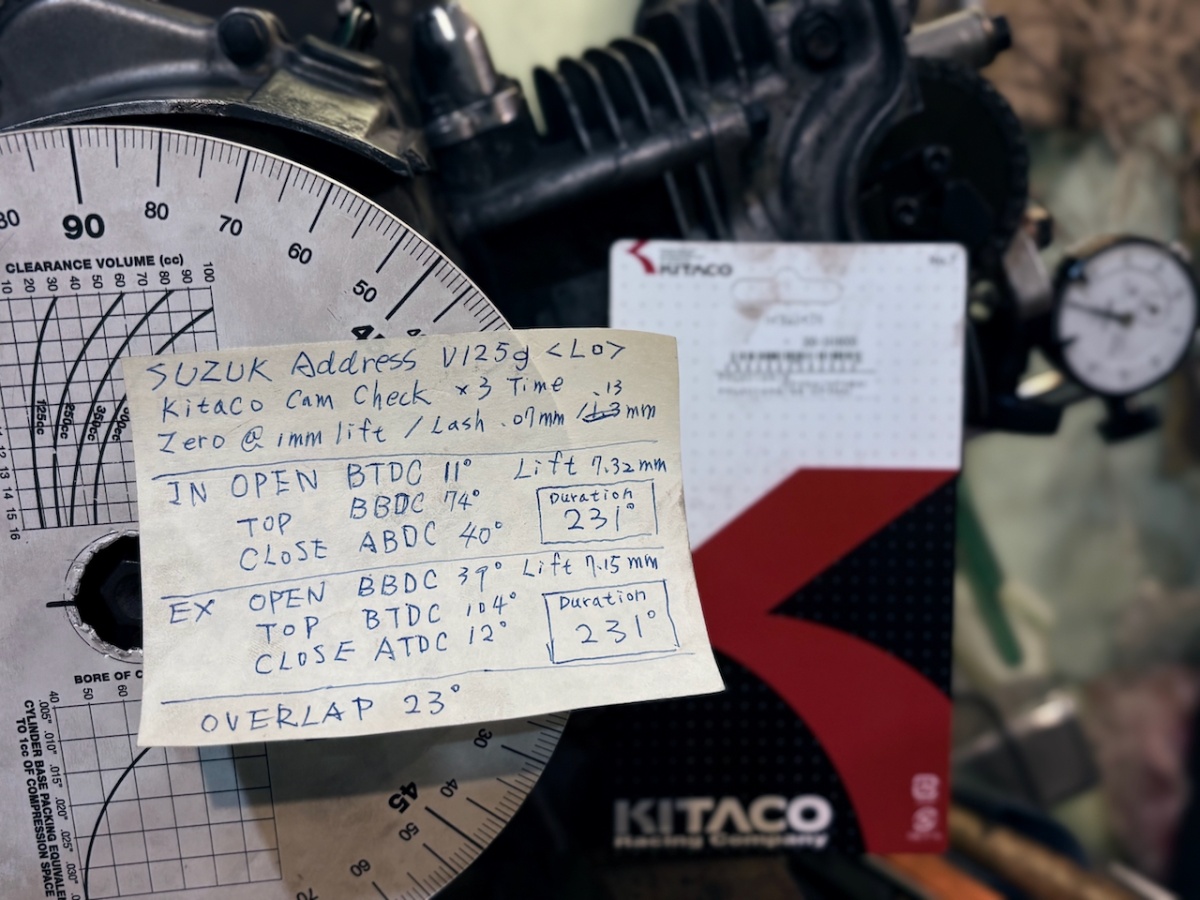 90
80
70
60
50
CLEARANCE VOLUME (cc)
10 20 30 40 50 60 70 80 90 100
125cc
250cc
350cc
12 13 14 15 16
SUZUK Address V125g <LO>
Kitaco Cam Check ×3 Time
.13
Zero @ 1mm lift / Lash .07mm / mm
IN OPEN BTDC 11° Lift 7.32mm
TOP BBDC 74° Duration
CLOSE ABDC 40° 231°
EX OPEN BBDC 39° Lift 7.15mm
TOP BTDC 104° Duration
CLOSE ATDC 12° 231°
OVERLAP 23°
BORE OF C
50 60
40
.005" .010" .015" .020" .025" .030"
CYLINDER BASE PACKING EQUIVALE
TO 1cc OF COMPRESSION SPACE
30
40
45
50
60
70
KITACO
KITACO
Racing Company